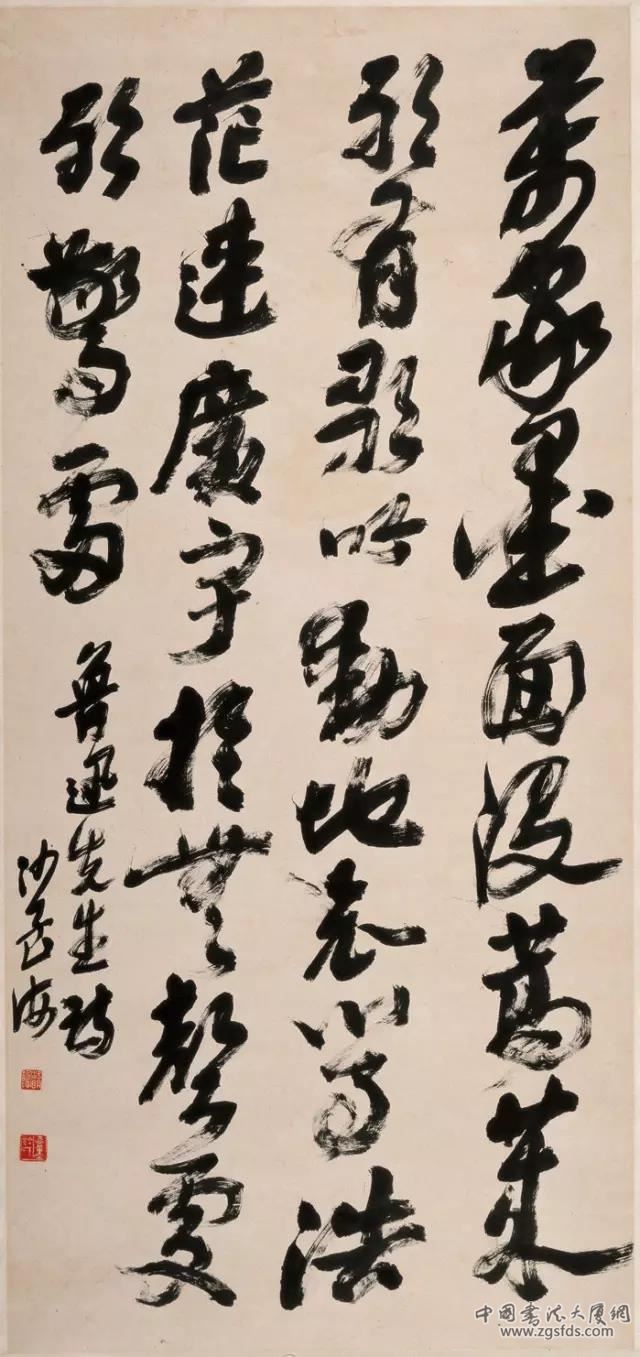 萬家墨面沒蒿萊
敢有歌吟動地哀心事浩
茫連廣宇於無聲處
聽驚雷 魯迅先生詩
沙孟海
中國書法大厦網
www.zgsfds.com